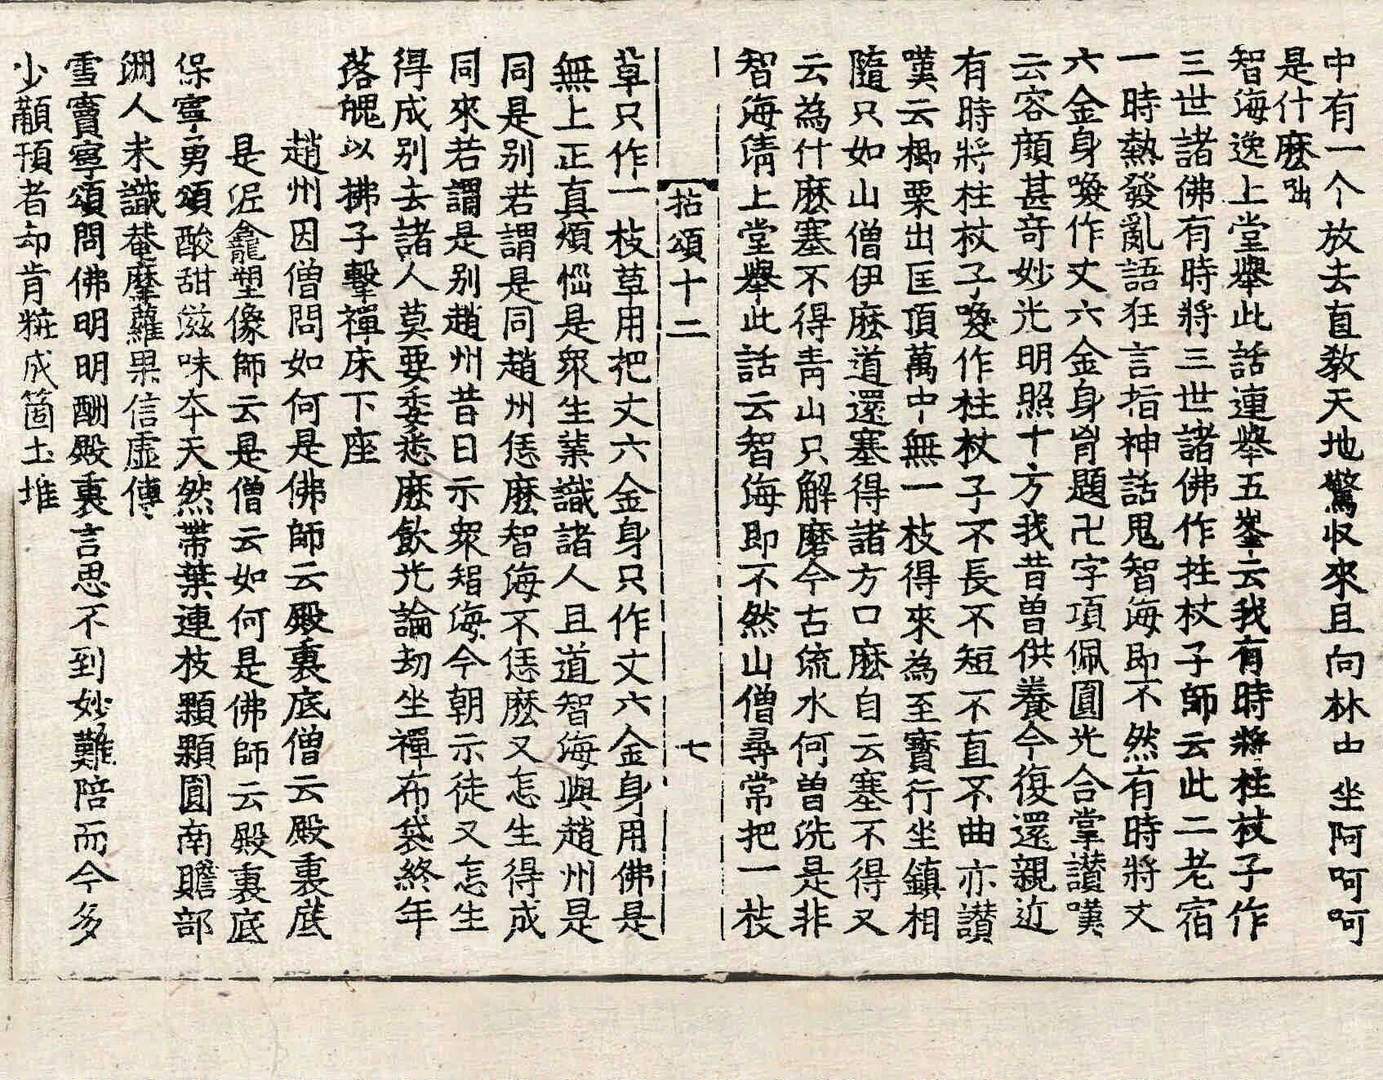 中有一个放去直教天地驚收來且向林中坐阿呵呵
是什麽咄
智海逸上堂舉此話連舉五峯云我有時將柱杖子作
三世諸佛有時將三世諸佛作拄杖子師云此二老宿
一時熱發亂語狂言指神話鬼智海即不然有時將丈
六金身喚作丈六金身肯題卍字項佩圓光合掌讃嘆
云容顔甚奇妙光明照十方我昔曾供養今復還親近
有時將柱杖子喚作柱杖子不長不短不直不曲亦讃
嘆云楖栗出匡頂萬中無一枝得來為至寳行坐鎮相
隨只如山僧伊麽道還塞得諸方口麽自云塞不得又
云為什麽塞不得靑山只解磨今古流水何曾洗是非
智海淸上堂舉此話云智海即不然山僧尋常把一枝
拈頌十二 七
草只作一枝草用把丈六金身只作丈六金身用佛是
無上正真煩惱是衆生業識諸人且道智海與趙州是
同是别若謂是同趙州恁麽智海不恁麽又怎生得成
同來若謂是别趙州昔日示衆智海今朝示徒又怎生
得成别去諸人莫要委悉麽飲光論劫坐禪布袋終年
落魄以拂子擊禪床下座
趙州因僧問如何是佛師云殿裏底僧云殿裏底
是泥龕塑像師云是僧云如何是佛師云殿裏底
保寧勇頌酸甜滋味夲天然帶葉連枝顆顆圓南贍部
洲人未識菴麼蘿果信虛傳
雪竇寧頌問佛明明酬殿裏言思不到妙難陪而今多
少顢頇者却肯粧成箇土堆